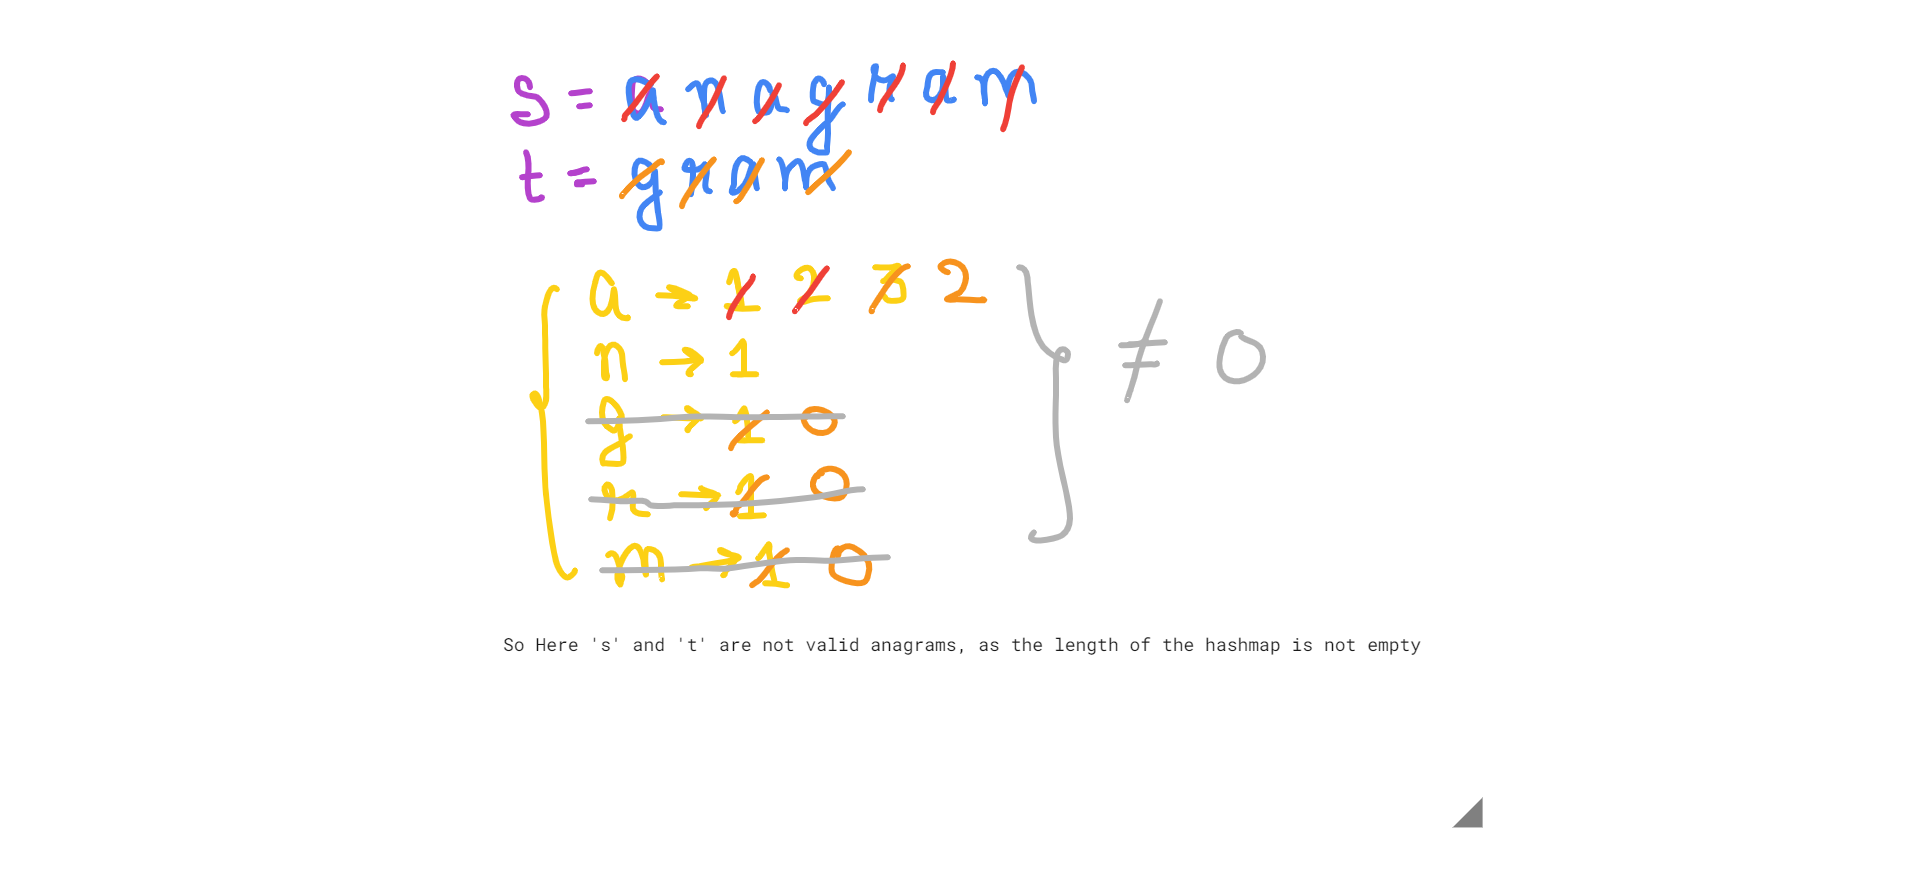 s = a n a g r a m
t = g r a m
a → 1 2 3 2
n → 1
g → 1 0
r → 1 0
m → 1 0
≠ 0
So Here 's' and 't' are not valid anagrams, as the length of the hashmap is not empty